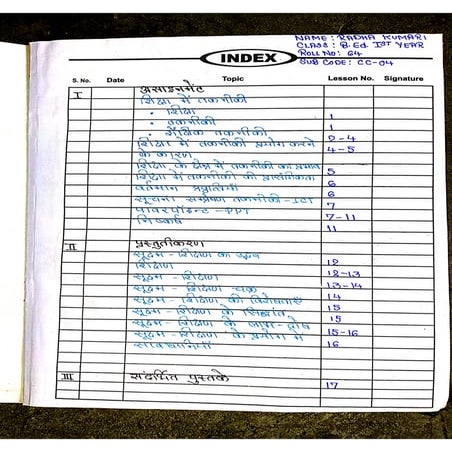 NAME: RADHA KUMARI
CLASS: B.Ed. IST YEAR
ROLL NO: 64
SUB CODE: CC-04
INDEX
S. No. Date Topic Lesson No. Signature
I असाइनमेंट
शिक्षा में तकनीकी
• शिक्षा 1
• तकनीकी 1
• शैक्षिक तकनीकी 2-4
शिक्षा में तकनीकी प्रयोग करने 4-5
के कारण
शिक्षा के क्षेत्र में तकनीकी का प्रभाव 5
शिक्षा में तकनीकी की प्रासंगिकता 6
वर्तमान प्रवृत्तियाँ 6
सूचना संप्रेषण तकनीकी-ICT 7
पावरपॉइन्ट-PPT 7-11
निष्कर्ष 11
II प्रस्तुतीकरण
सूक्ष्म-शिक्षण का उद्भव 12
शिक्षण 12-13
सूक्ष्म-शिक्षण 13-14
सूक्ष्म-शिक्षण चक्र 14
सूक्ष्म-शिक्षण की विशेषताएँ 15
सूक्ष्म-शिक्षण के सिद्धांत 15
सूक्ष्म-शिक्षण के लाभ-दोष 15-16
सूक्ष्म-शिक्षण के प्रयोग में 16
सावधानियाँ
III संदर्भित पुस्तकें 17